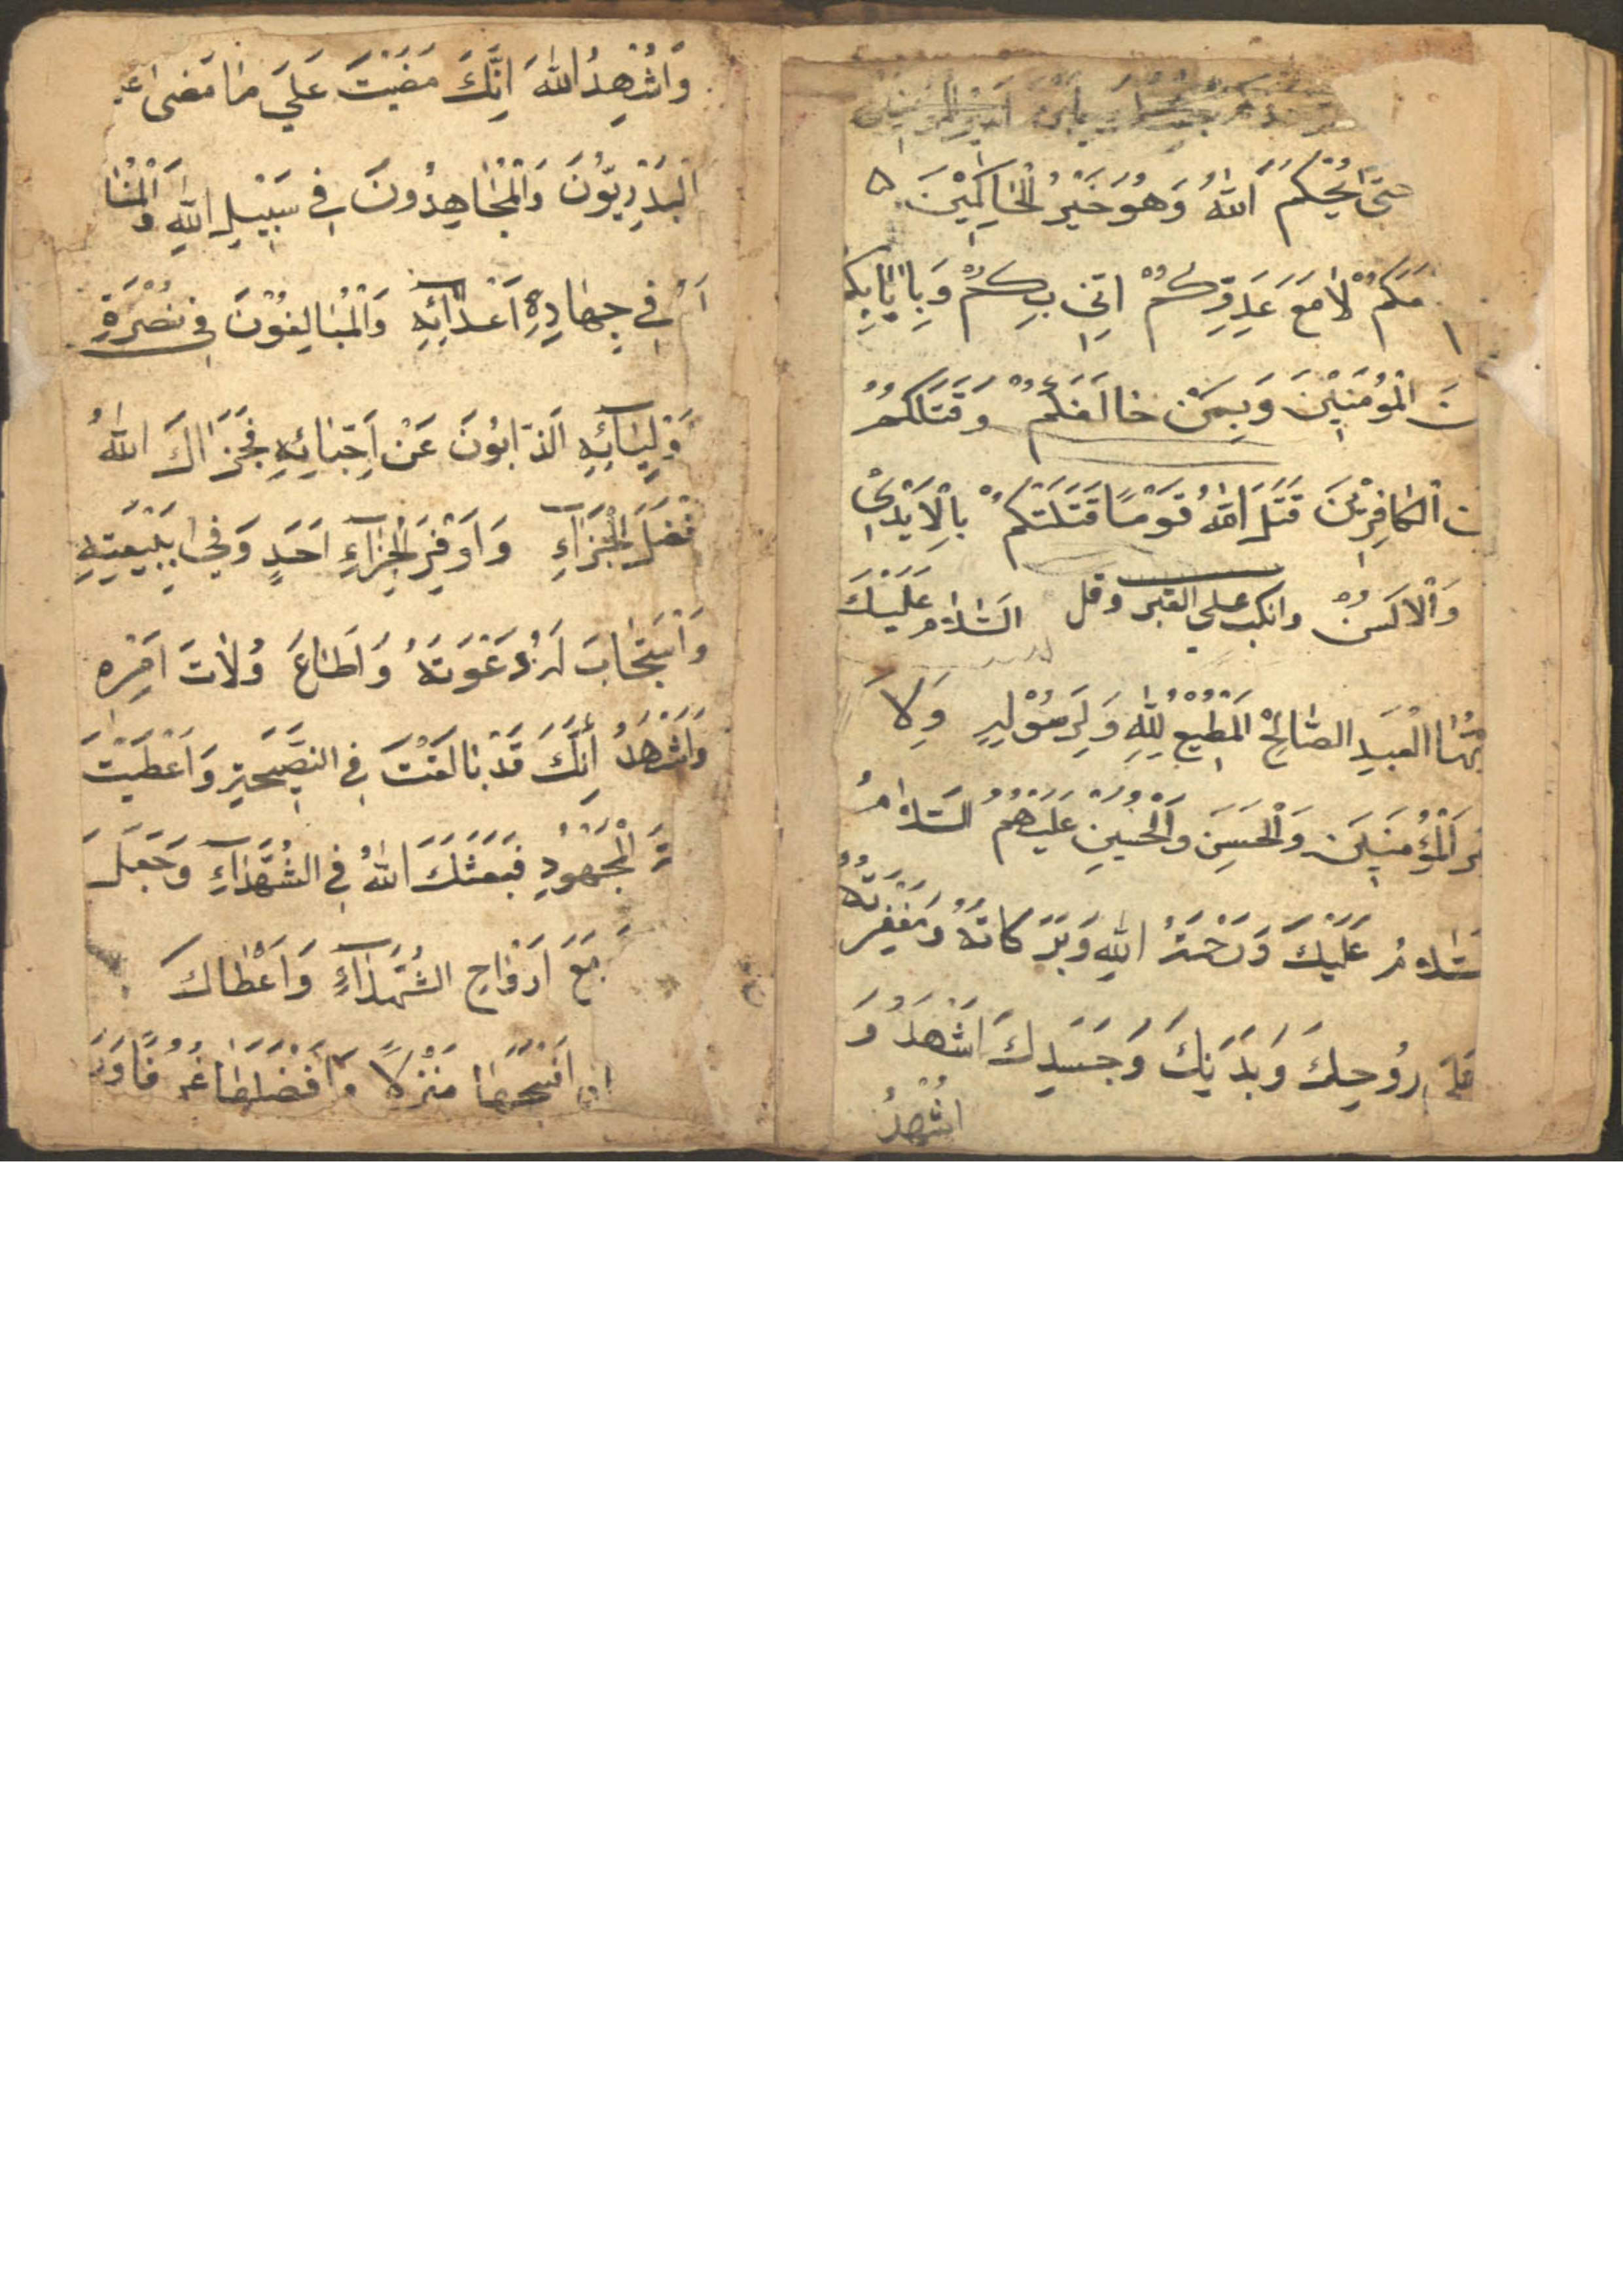 يابن امير المؤمنين
حتى يَحْكُمَ اللهُ وَهُوَ خَيْرُ الْحَاكِمِيْنَ
مَعَكُمْ لَا مَعَ عَدُوِّكُمْ اِنِّي بِكُمْ وَبِاِيَابِكُمْ
نَ الْمُؤْمِنِيْنَ وَبِمَنْ خَالَفَكُمْ وَقَتَلَكُمْ
الْكَافِرِيْنَ قَتَلَ اللهُ قَوْمًا قَتَلَتْكُمْ بِالْاَيْدِيْ
وَالْاَلْسُنْ وانكب على القبر وقل السَّلَامُ عَلَيْكَ
يُّهَا الْعَبْدُ الصَّالِحُ الْمُطِيْعُ لِلّٰهِ وَلِرَسُوْلِهِ وَلِا
الْمُؤْمِنِيْنَ وَالْحَسَنِ وَالْحُسَيْنِ عَلَيْهِمُ السَّلَامُ
سَّلَامُ عَلَيْكَ وَرَحْمَةُ اللهِ وَبَرَكَاتُهُ وَمَغْفِرَتُهُ
رُوْحِكَ وَبَدَنِكَ وَجَسَدِكَ اَشْهَدُ وَ
اُشْهِدُ
وَاُشْهِدُ اللهَ اِنَّكَ مَضَيْتَ عَلَى مَا مَضَى عَ
الْبَدْرِيُّوْنَ وَالْمُجَاهِدُونَ فِي سَبِيْلِ اللهِ وَالْمُنَا
فِي جِهَادِهِ اَعْدَائِهِ وَالْمُبَالِغُوْنَ فِي نُصْرَةِ
وْلِيَائِهِ الذَّابُّوْنَ عَنْ اَحِبَّائِهِ فَجَزَاكَ اللهُ
فْضَلَ الْجَزَاءِ وَاَوْفَرَ الْجَزَاءِ اَحَدٍ وَفِيْ بِبَيْعَتِهِ
وَاسْتَجَابَ لَهُ دَعْوَتَهُ وَاَطَاعَ وُلَاتَ اَمْرِهِ
وَاَشْهَدُ اَنَّكَ قَدْ بَالَغْتَ فِي النَّصِيْحَةِ وَاَعْطَيْتَ
ةَ الْمَجْهُوْدِ فَبَعَثَكَ اللهُ فِي الشُّهَدَاءِ وَجَعَلَ
مَعَ اَرْوَاحِ الشُّهَدَاءِ وَاَعْطَاكَ
اَفْسَحَهَا مَنْزِلًا وَاَفْضَلَهَا غُرُفًا وَرَ